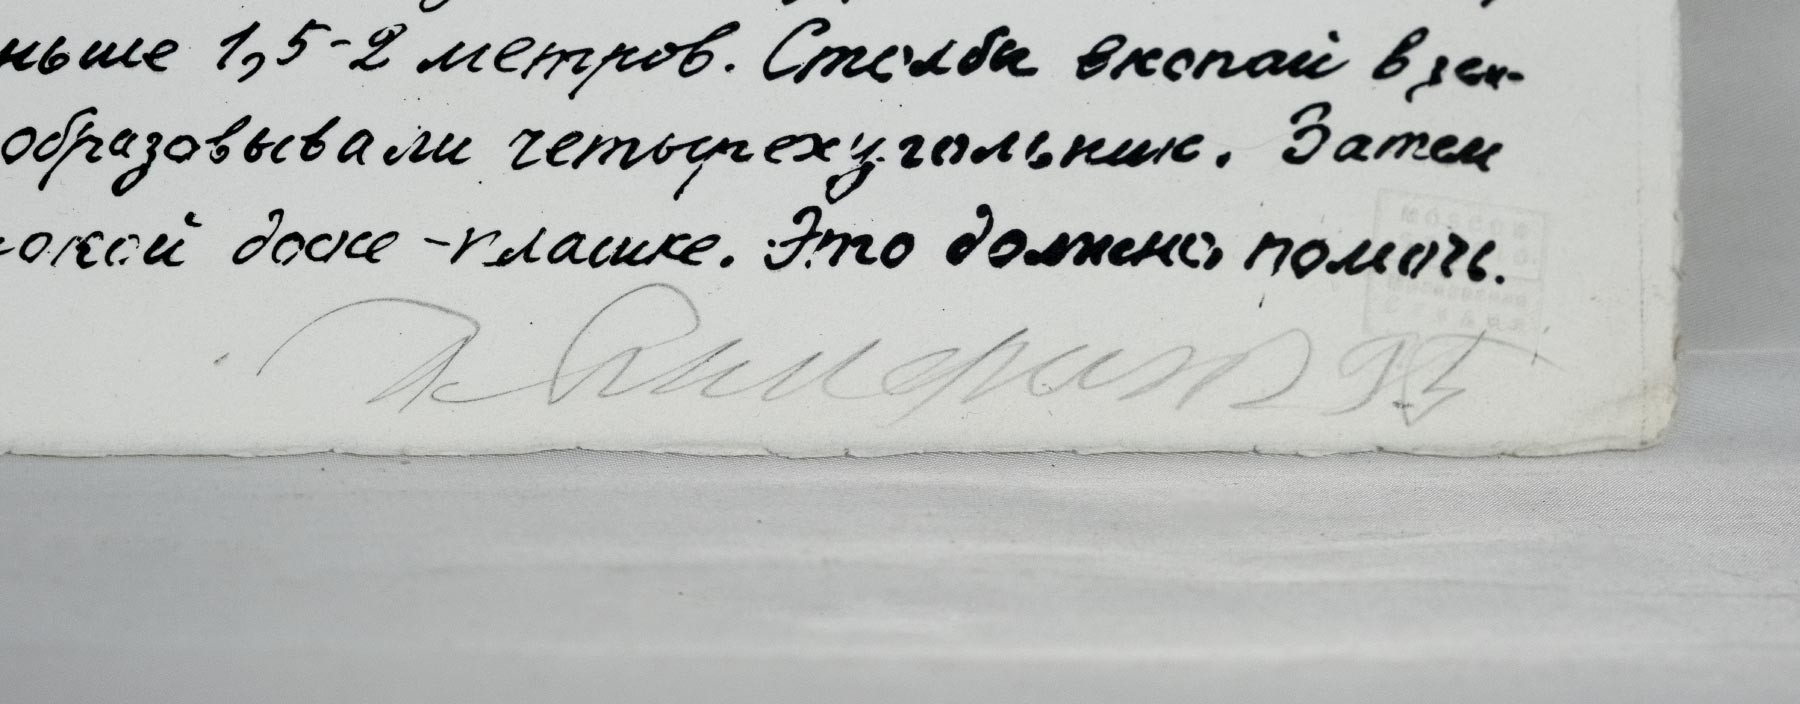 ньше 1,5-2 метров. Столбы вкопай в зем-
образовывали четырехугольник. Затем
окой доске -плашке. Это должно помочь.